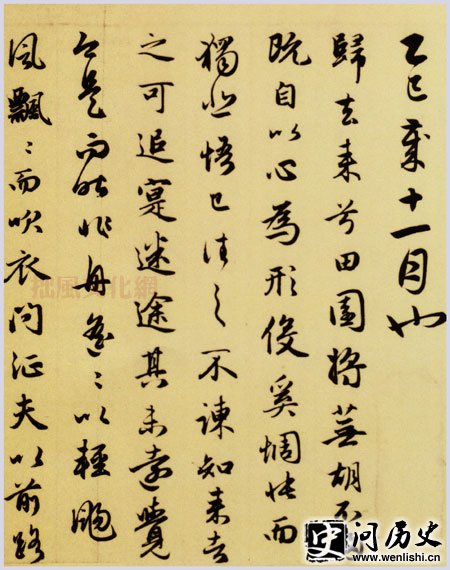 乙巳歲十一月也
歸去来兮田園將蕪胡不
既自以心為形役奚惆悵而
獨悲悟已往之不諫知来者
之可追寔迷途其未遠覺
今是而昨非舟遙〻以輕颺
風飄〻而吹衣問征夫以前路
拙風文化網
史问历史
www.wenlishi.cn